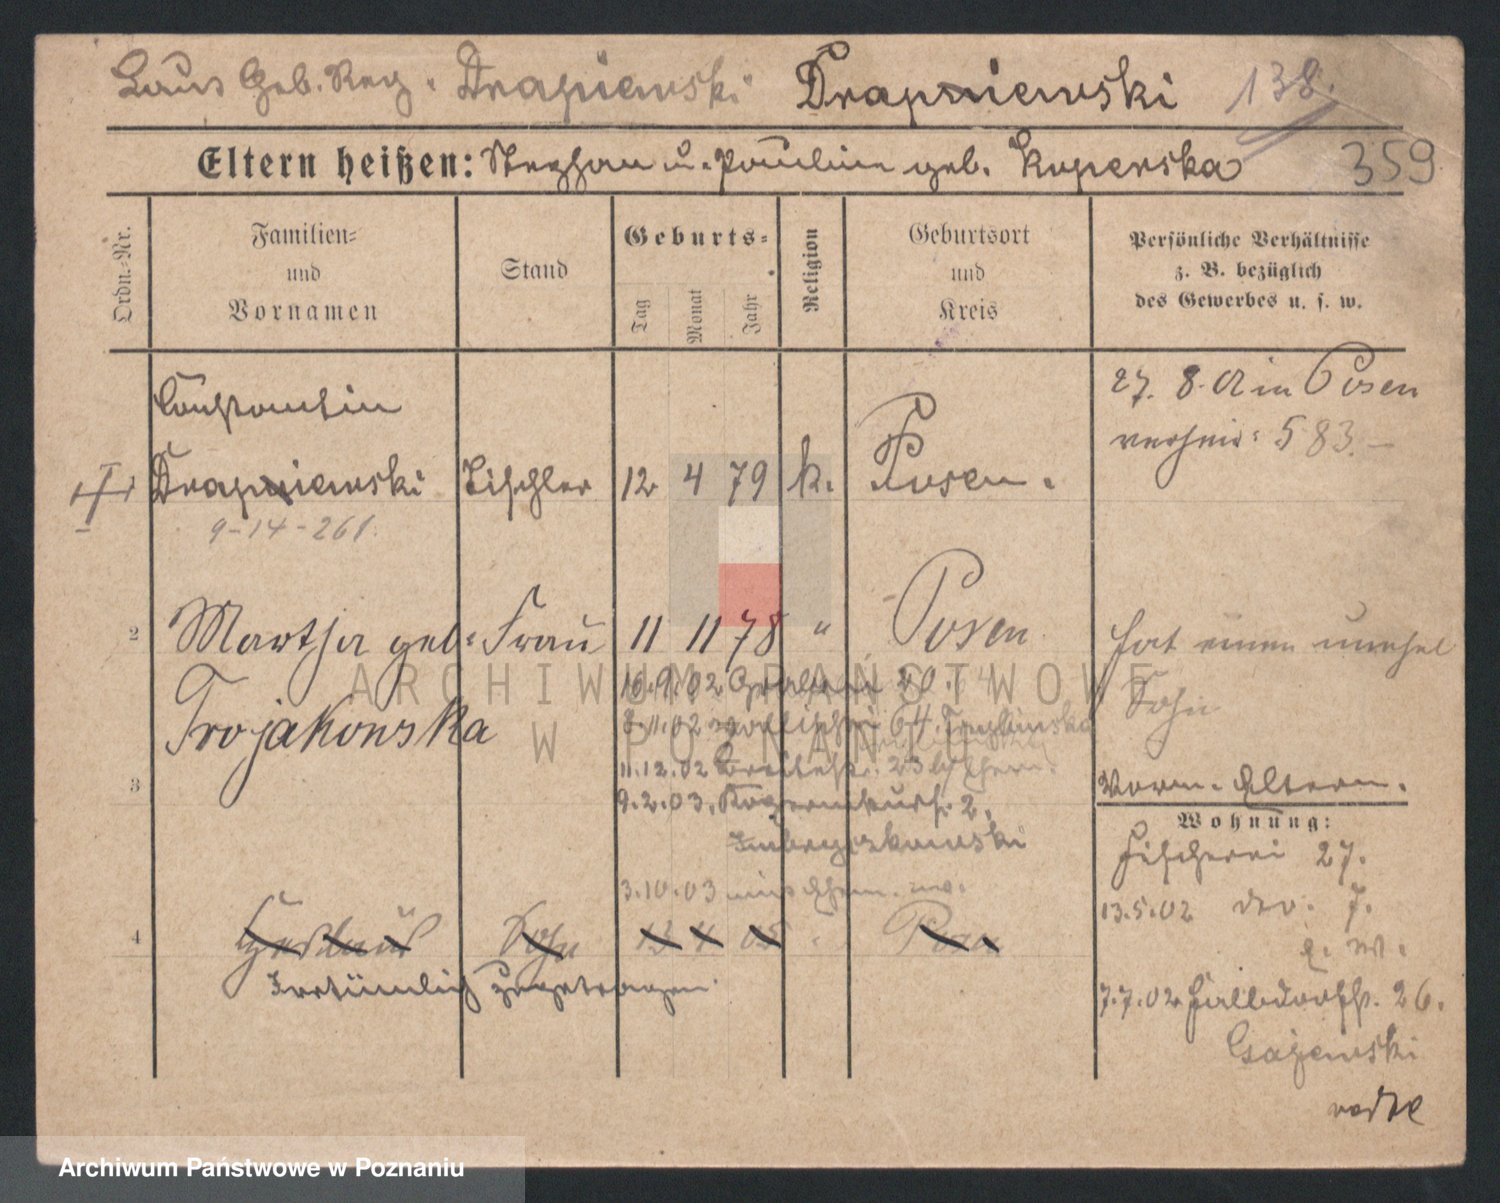 Laut Geb. Reg. Drapiewski Drapniewski 138.
Eltern heißen: Stephan u. Paulina geb. Koperska 359
Ordn.-Nr.
Familien-
und
Vornamen
Stand
Geburts-
Tag
Monat
Jahr
Religion
Geburtsort
und
Kreis
Persönliche Verhältnisse
z. B. bezüglich
des Gewerbes u. s. w.
Constantin
Drapniewski Tischler 12 4 79 k. Posen.
9-14-261.
27. 8. 01 in Posen
verheir: 583.
2 Martha geb: Frau 11 11 78 " Posen
Trojakowska
hat einen unehel
Sohn
16.9.02 20.
8.11.02 64.
11.12.02 23
3
9.2.03. 2.
3.10.03
Vorm. Eltern.
Wohnung:
Fischerei 27.
13.5.02 7.
7.7.02 Halbdorfstr. 26.
Gajewski
4 Sohn 13 4 05 Posen
Irrtümlich zugetragen.
ARCHIWUM PAŃSTWOWE
W POZNANIU
Archiwum Państwowe w Poznaniu